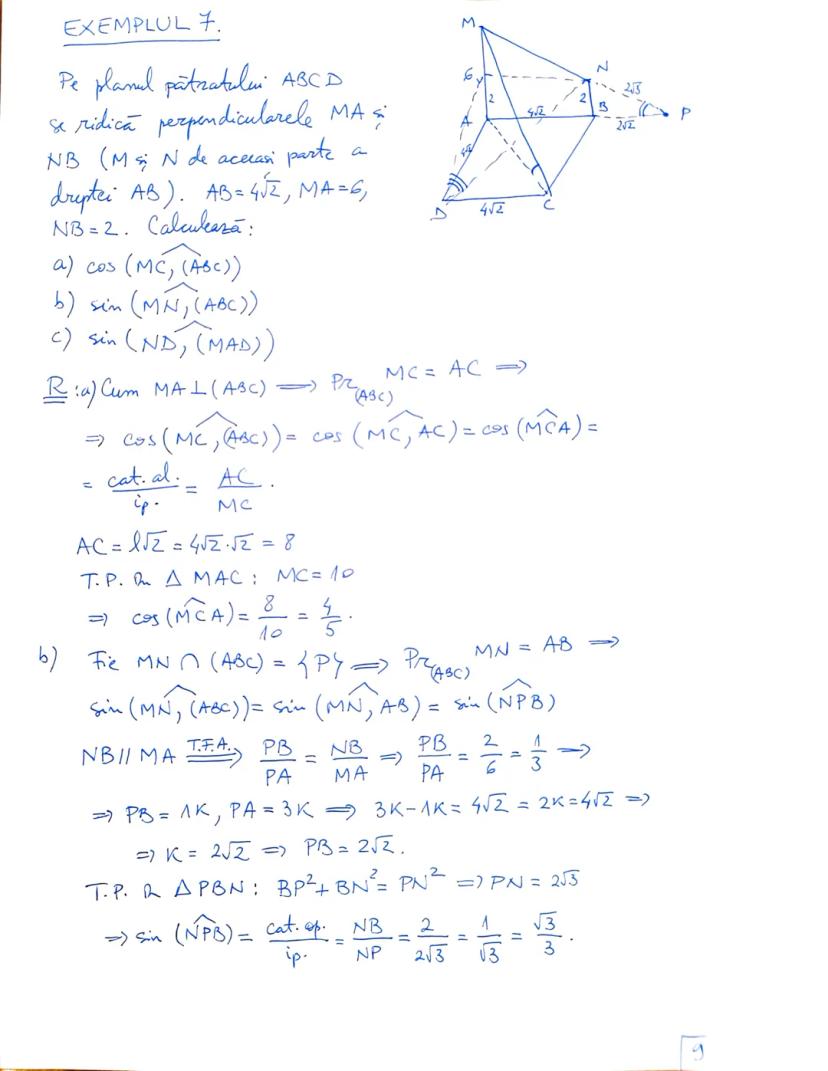 EXEMPLUL 7.
Pe planul pătratului ABCD
se ridică perpendicularele MA și
NB (M și N de aceeași parte a
dreptei AB). AB=4√2, MA=6,
NB=2. Calculează:
a) cos (MC, (ABC))
b) sin (MN, (ABC))
c) sin (ND, (MAD))
M
N
6
2
2
2√3
A
B
P
4√2
2√2
4√2
D
4√2
C
R: a) Cum MA⊥(ABC) ⟹ Pr(ABC) MC = AC ⟹
⇒ cos(MC, (ABC)) = cos (MC, AC) = cos (MCA) =
= cat. al. / ip. = AC / MC.
AC = l√2 = 4√2·√2 = 8
T.P. în Δ MAC: MC=10
⇒ cos(MCA) = 8/10 = 4/5.
b) Fie MN ∩ (ABC) = {P} ⟹ Pr(ABC) MN = AB ⟹
sin(MN, (ABC)) = sin (MN, AB) = sin (NPB)
NB // MA T.F.A.⟹ PB/PA = NB/MA ⇒ PB/PA = 2/6 = 1/3 ⟹
⇒ PB = 1K, PA = 3K ⟹ 3K-1K = 4√2 = 2K = 4√2 ⇒
⇒ K = 2√2 ⇒ PB = 2√2.
T.P. în ΔPBN: BP²+BN² = PN² ⇒ PN = 2√3
⇒ sin (NPB) = cat. op. / ip. = NB/NP = 2/2√3 = 1/√3 = √3/3.
9